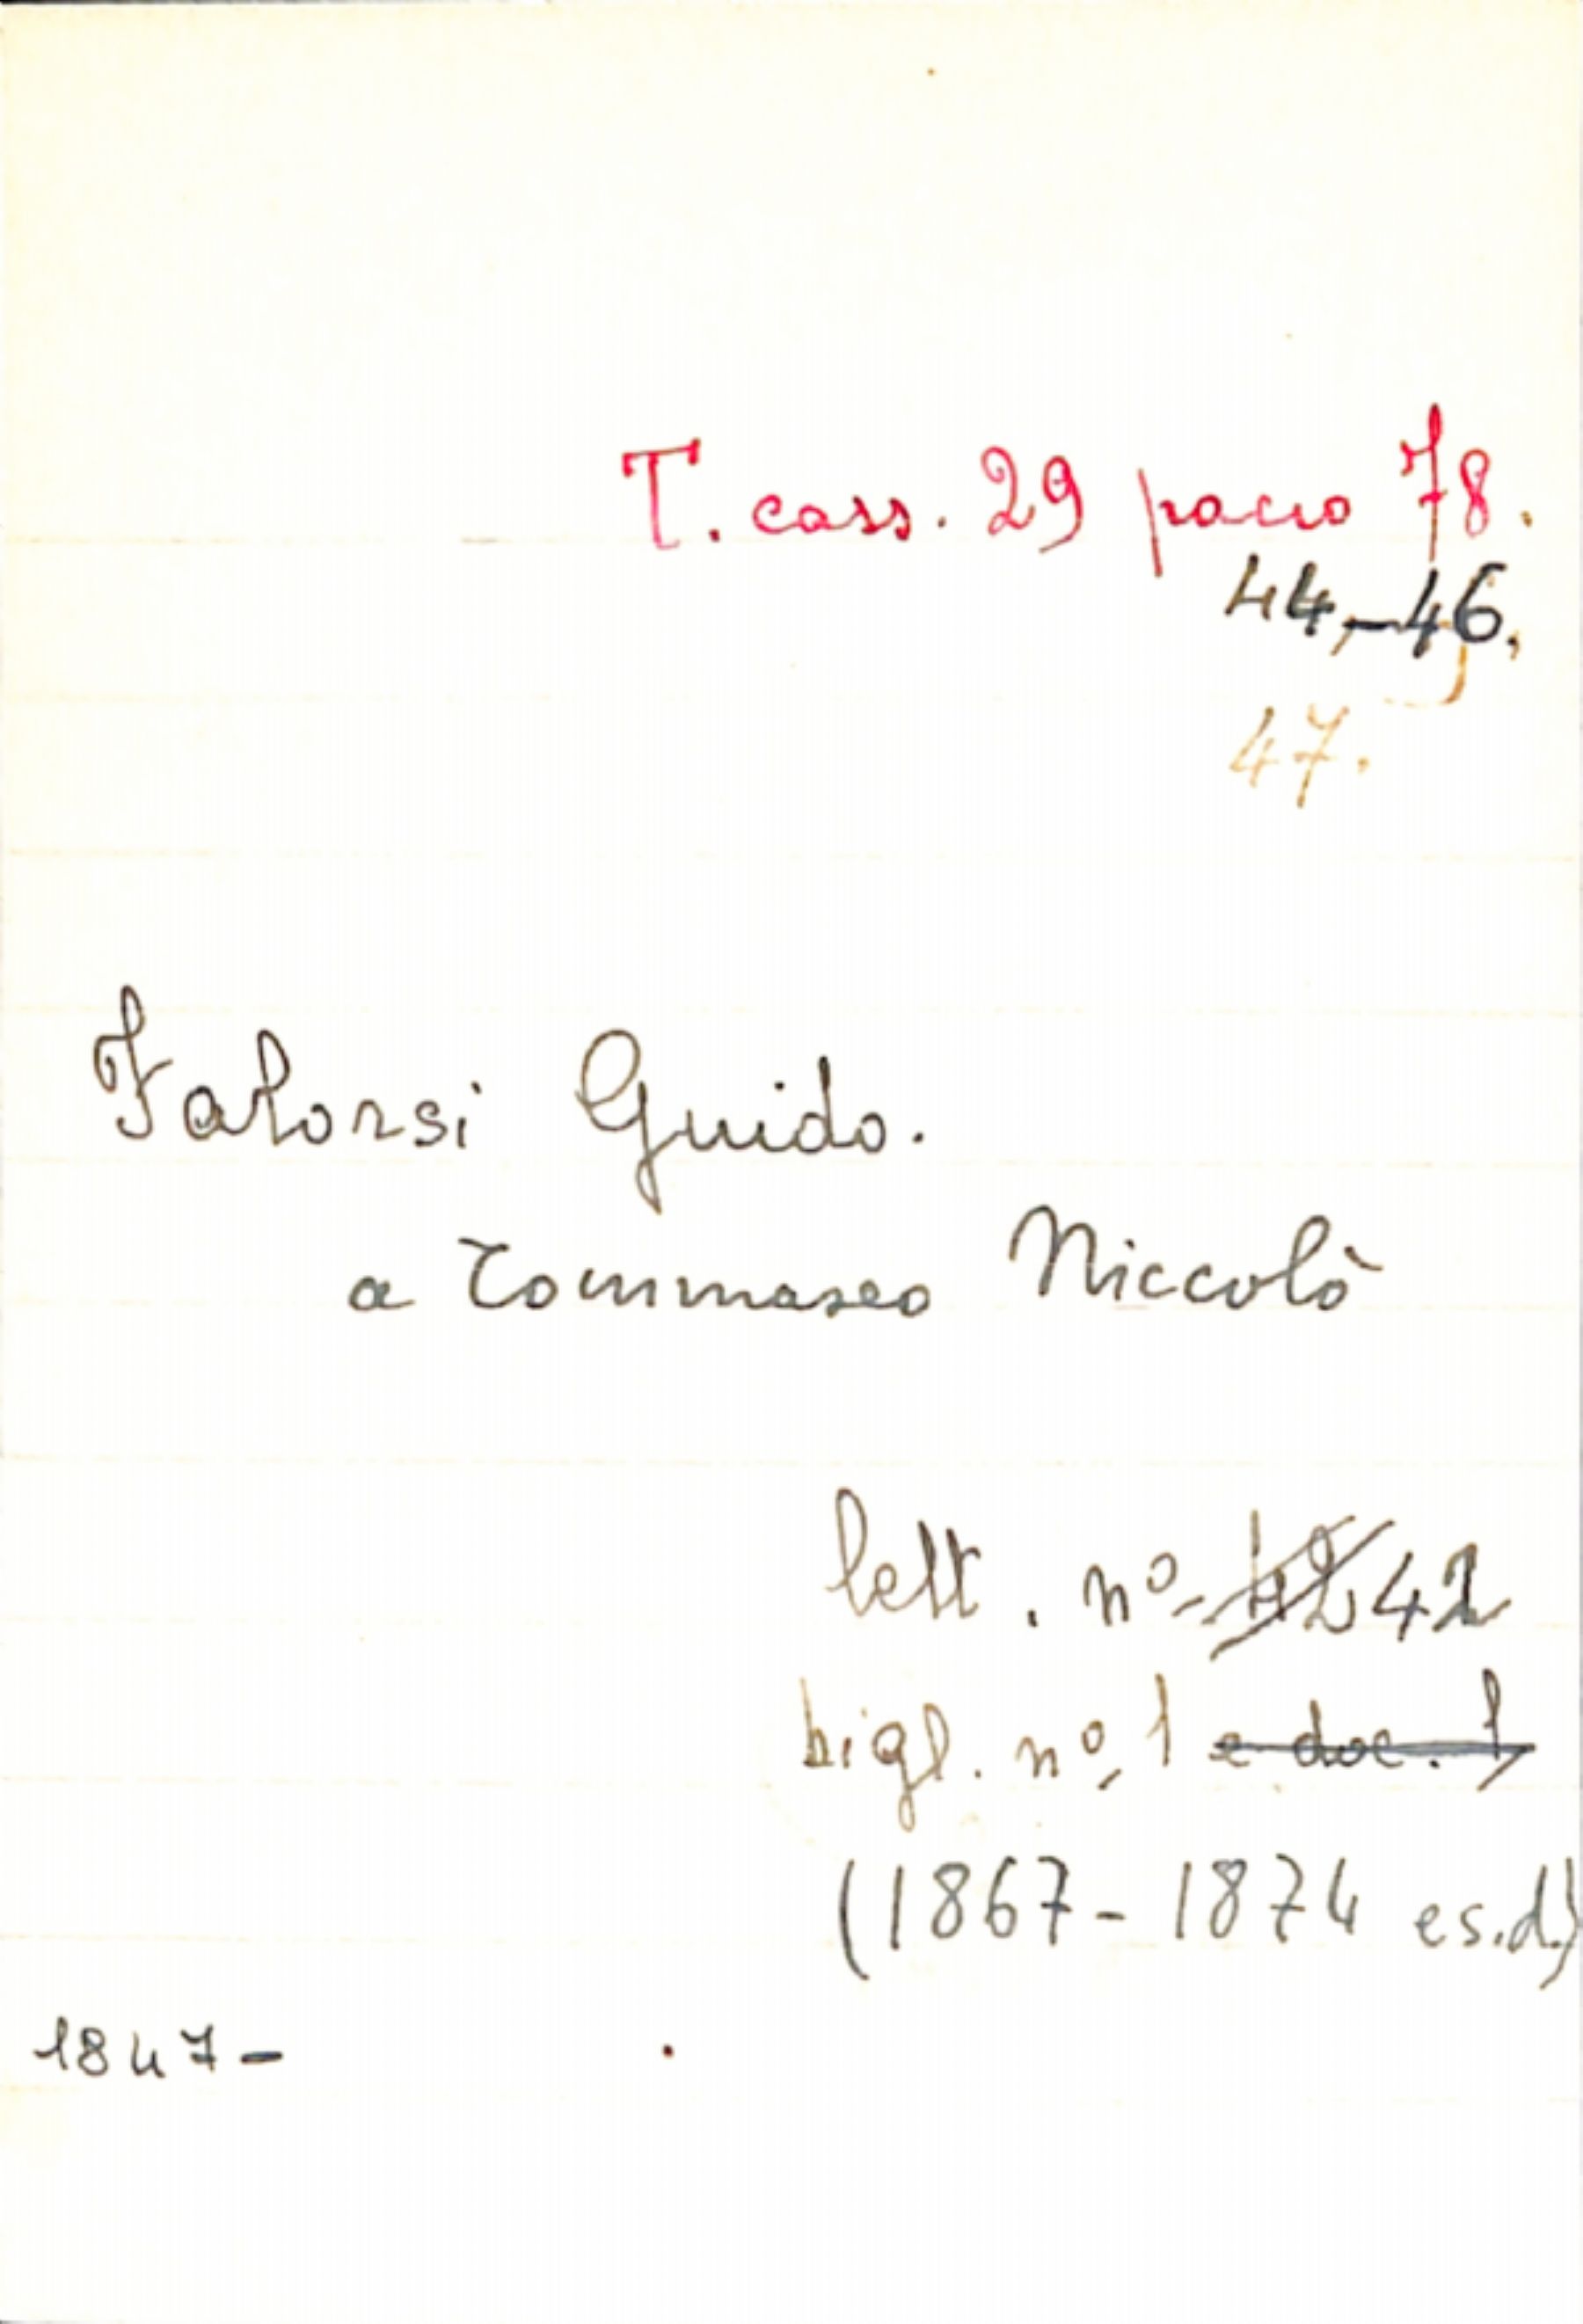 T. cass. 29 pacco 78.
44,-46,
47.
Falorsi Guido.
a Tommaseo Niccolò
lett. nº 42 42
bigl. nº, 1 e doc. 1
(1867-1874 e s.d.)
1847-